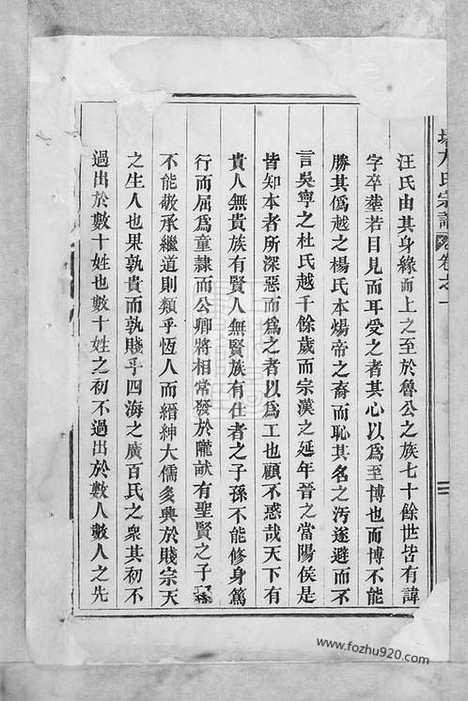 方氏宗譜 卷之一
汪氏由其身緣而上之至於魯公之族七十餘世皆有諱
字卒塟若目見而耳愛之者其心以爲至博也而博不能
勝其僞越之楊氏本煬帝之裔而恥其名之汚遂避而不
言吳寧之杜氏越千餘歲而宗漢之延年晉之當陽侯是
皆知本者所深惡而爲之者以爲工也顧不惑哉天下有
貴人無貴族有賢人無賢族有仕者之子孫不能修身篤
行而屈爲童隷而公卿將相常發於隴畝有聖賢之子孫
不能敬承繼道則類乎恆人而縉紳大儒多興於賤宗天
之生人也果孰貴而孰賤乎四海之廣百氏之衆其初不
過出於數十姓也數十姓之初不過出於數人數人之先
www.fozhu920.com